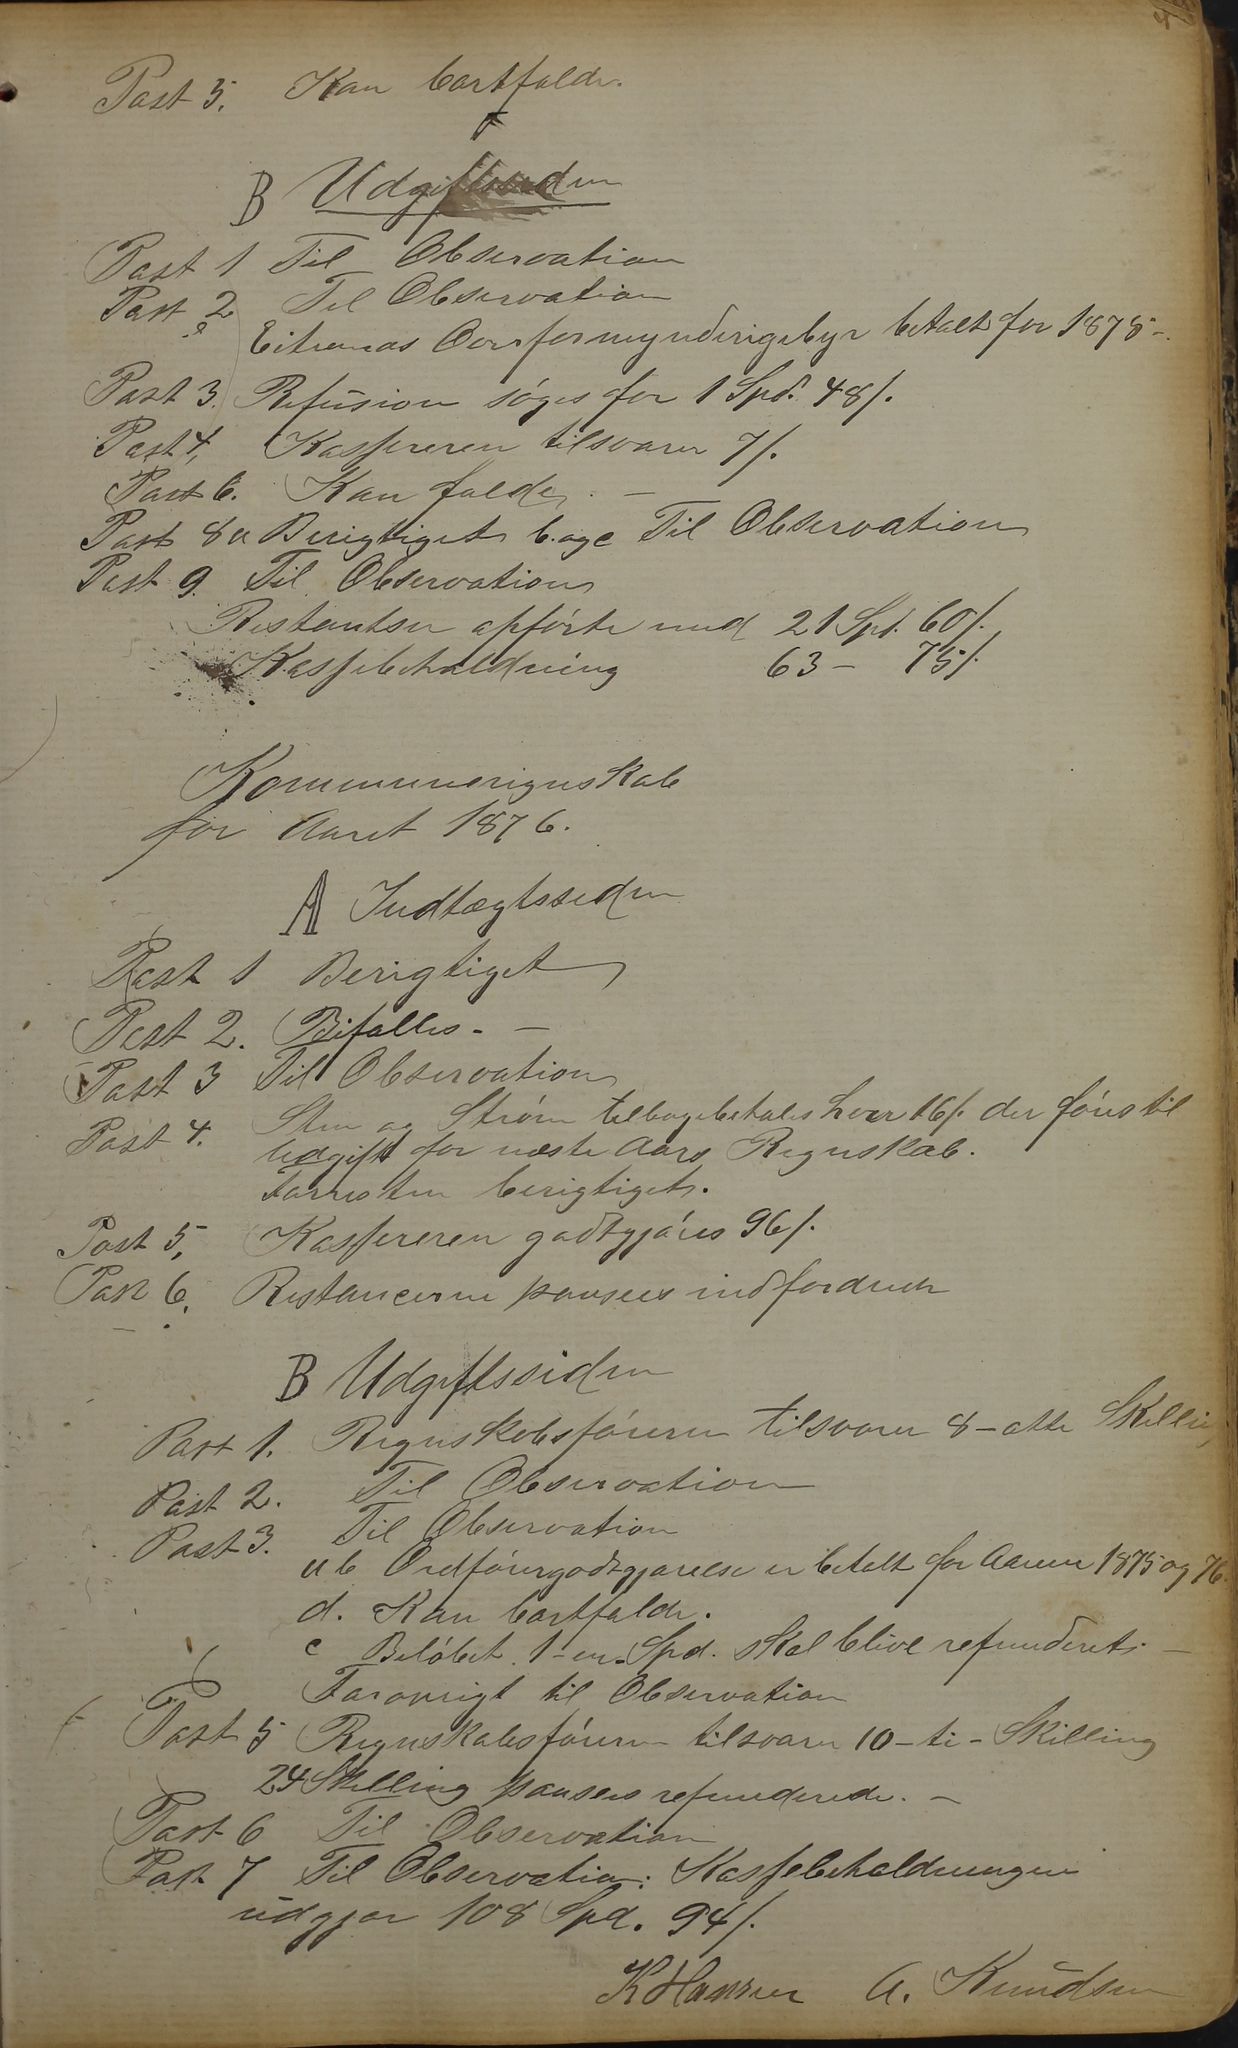 Post 5. Kan bortfalde.
B Udgiftssiden
Post 1 Til Observation
Post 2 Til Observation
Eitranas Overformynderigebyr betalt for 1875 -.
Post 3. Refusion søges for 1 Spd. 48/.
Post 4, Kassereren tilsvarer 7/.
Post 6. Kan falde. -
Post 8a Berigtiget b. og c Til Observation
Post 9. Til Observation
Restantser opførte med 21 Spd. 60/.
Kassebeholdning 63 - 75/.
Kommuneregnskab
for Aaret 1876.
A Indtægtssiden
Post 1 Berigtiget
Post 2. Bifalles. -
Post 3 Til Observation
Post 4. Sten og Strøm tilbagebetales hver 16/. der føres til
Udgift for næste Aars Regnskab.
Forresten berigtiget.
Post 5, Kassereren godtgjøres 96/.
Post 6. Restancerne paasees indfordrede
B Udgiftssiden
Post 1. Regnskabsføreren tilsvarer 8 - otte Skilling
Post 2. Til Observation
Post 3. Til Observation
a b Ordførergodtgjørelse er betalt for Aarene 1875 og 76.
d. Kan bortfalde.
c Beløbet 1 - en - Spd. skal blive refunderet. -
Forøvrigt til Observation
Post 5 Regnskabsføreren tilsvarer 10 - ti - Skilling
24 Skilling paasees refunderede. -
Post 6 Til Observation
Post 7 Til Observation: Kassebeholdningen
udgjør 108 Spd. 94/.
K Hansen A. Knudsen